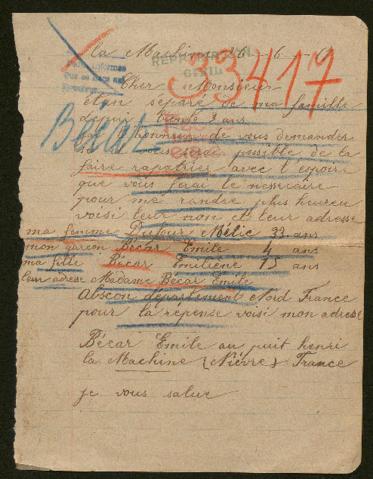 La Machine 6 6
RÉPONSE
CIVIL
33417
Cher Monsieur
etan séparé de ma famille
depui 3 ans
honneur de vous demander
possible de la
faire rapatrier avec l'espoir
que vous ferai le nessesaire
pour ma randre plus heureu
voisi leur nom et leur adresse
Bécar
ma femme Dufour Mélie 33 ans
mon garçon Bécar Emile 4 ans
ma fille Bécar Emiliene 15 ans
leur adrese Madame Bécar Emile
Abscon département Nord France
pour la répense voisi mon adrese
Bécar Emile au puit henri
la Machine (Nièvre) France
je vous salue